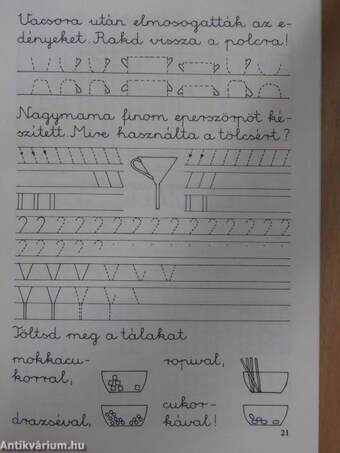 Vacsora után elmosogatták az e-
dényeket. Rakd vissza a polcra!
Nagymama finom eperszörpöt ké-
szített. Mire használta a tölcsért?
Töltsd meg a tálakat
mokkacu-
korral,
ropival,
drazséval,
cukor-
kával!
21
Antikvárium.hu